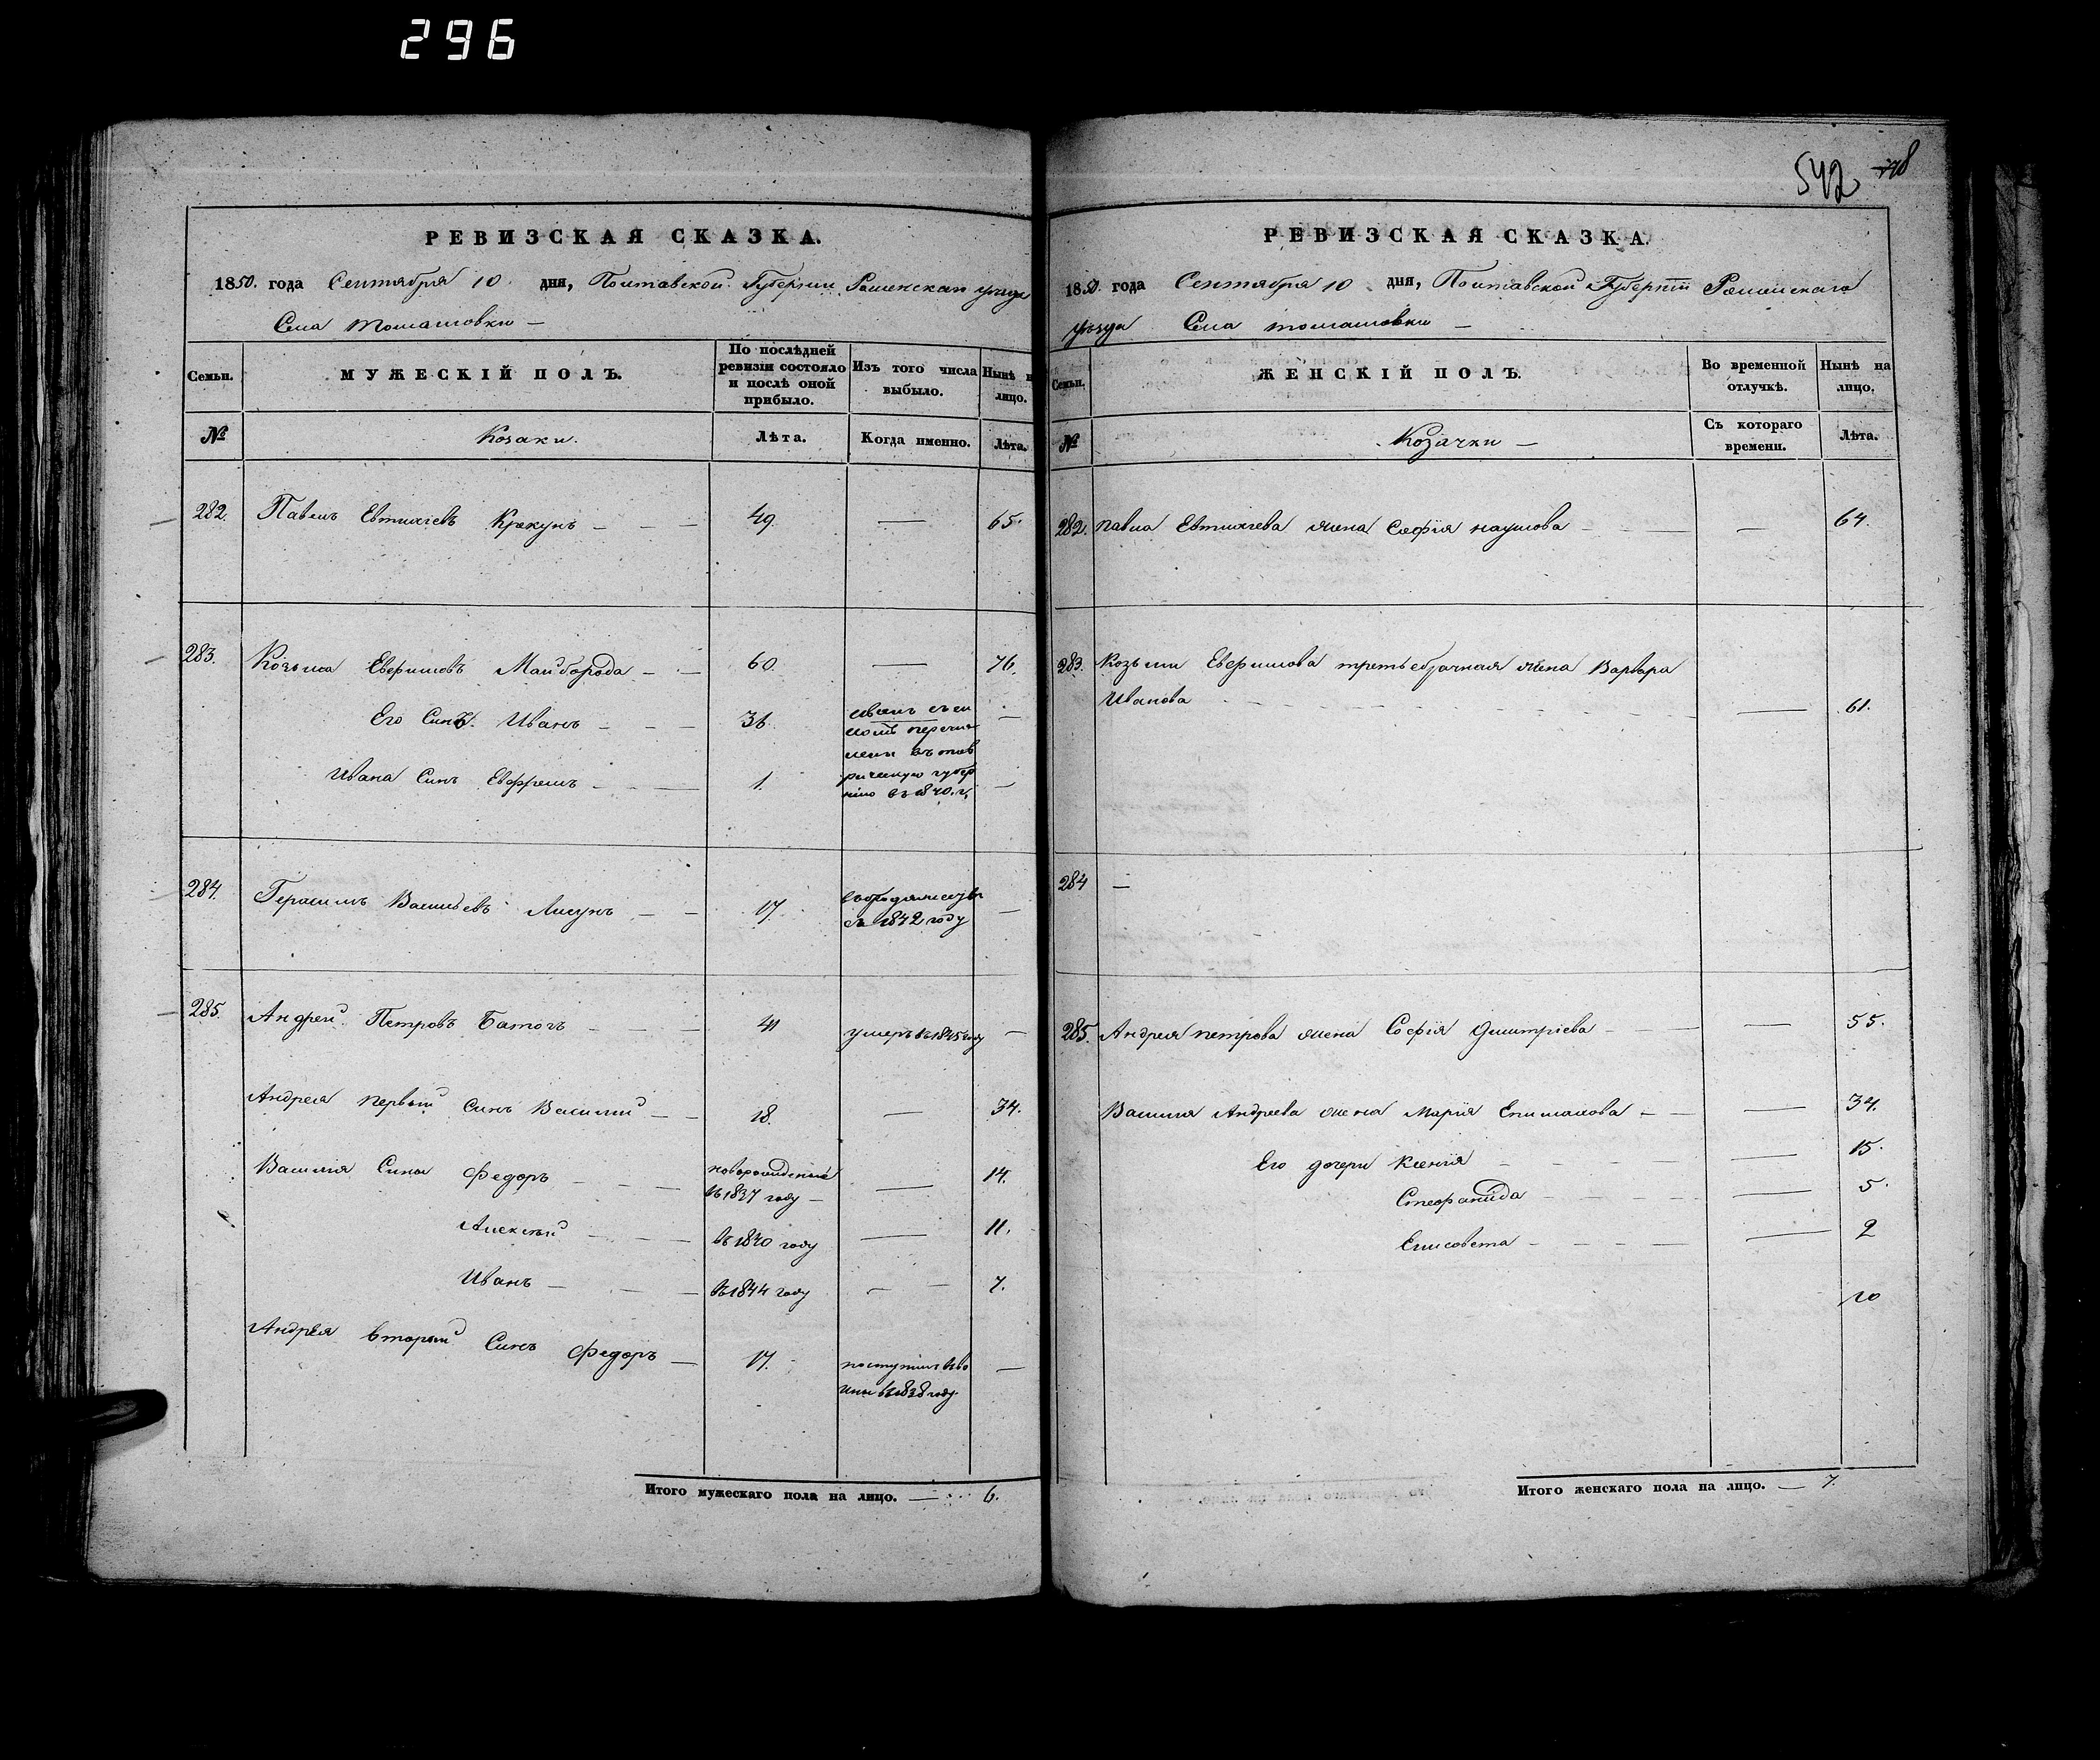 296
РЕВИЗСКАЯ СКАЗКА.
1850. года Сентября 10 дня, Полтавской Губернии Роменскаго уезда
Села Томашовки —
Семьи. МУЖЕСКІЙ ПОЛЪ. По послѣдней ревизіи состояло и послѣ оной прибыло. Изъ того числа выбыло. Нынѣ н лицо.
№ Козаки. Лѣта. Когда именно. Лѣта.
282. Павелъ Евтихіевъ Крекунъ — 49. — 65.
283. Козьма Евфимовъ Майборода — 60. — 76.
Его Синъ Иванъ — 36. —
Ивана Синъ Евфремъ — 1. —
перечис
лены въ тав
рическую губер
нію въ 1840. г.
284. Герасимъ Васильевъ Лисунъ — 17.
въ 1842 году —
285. Андрей Петровъ Батогъ — 41 умеръ въ 1845 году —
Андрея первый Синъ Василий — 18. — 34.
Василия Сины Федоръ — новорожденный
въ 1837 году — — 14.
Алексѣй — въ 1840 году — 11.
Иванъ — въ 1844 году — 7.
Андрея вторый Синъ Федоръ — 17. поступилъ въ во
ины въ 1838 году. —
Итого мужескаго пола на лицо. — 6.
542 718
РЕВИЗСКАЯ СКАЗКА.
1850. года Сентября 10 дня, Полтавской Губерніи Роменскаго
уезда Села Томашовки —
Семьи. ЖЕНСКІЙ ПОЛЪ. Во временной отлучкѣ. Нынѣ на лицо.
№ Козачки — Съ котораго времени. Лѣта.
282. Павла Евтихіева жена Софія Наумова — — 64.
283. Козьмы Евфимова третьебрачная жена Варвара
Иванова — — 61.
284 —
285. Андрея Петрова жена Софія Дмитріева — — 55.
Василия Андреева жена Марія Епимахова — — 34.
Его дочери Ксенія — 15.
Стефанида — 5.
Елисовета — 2
Итого женскаго пола на лицо. — 7.